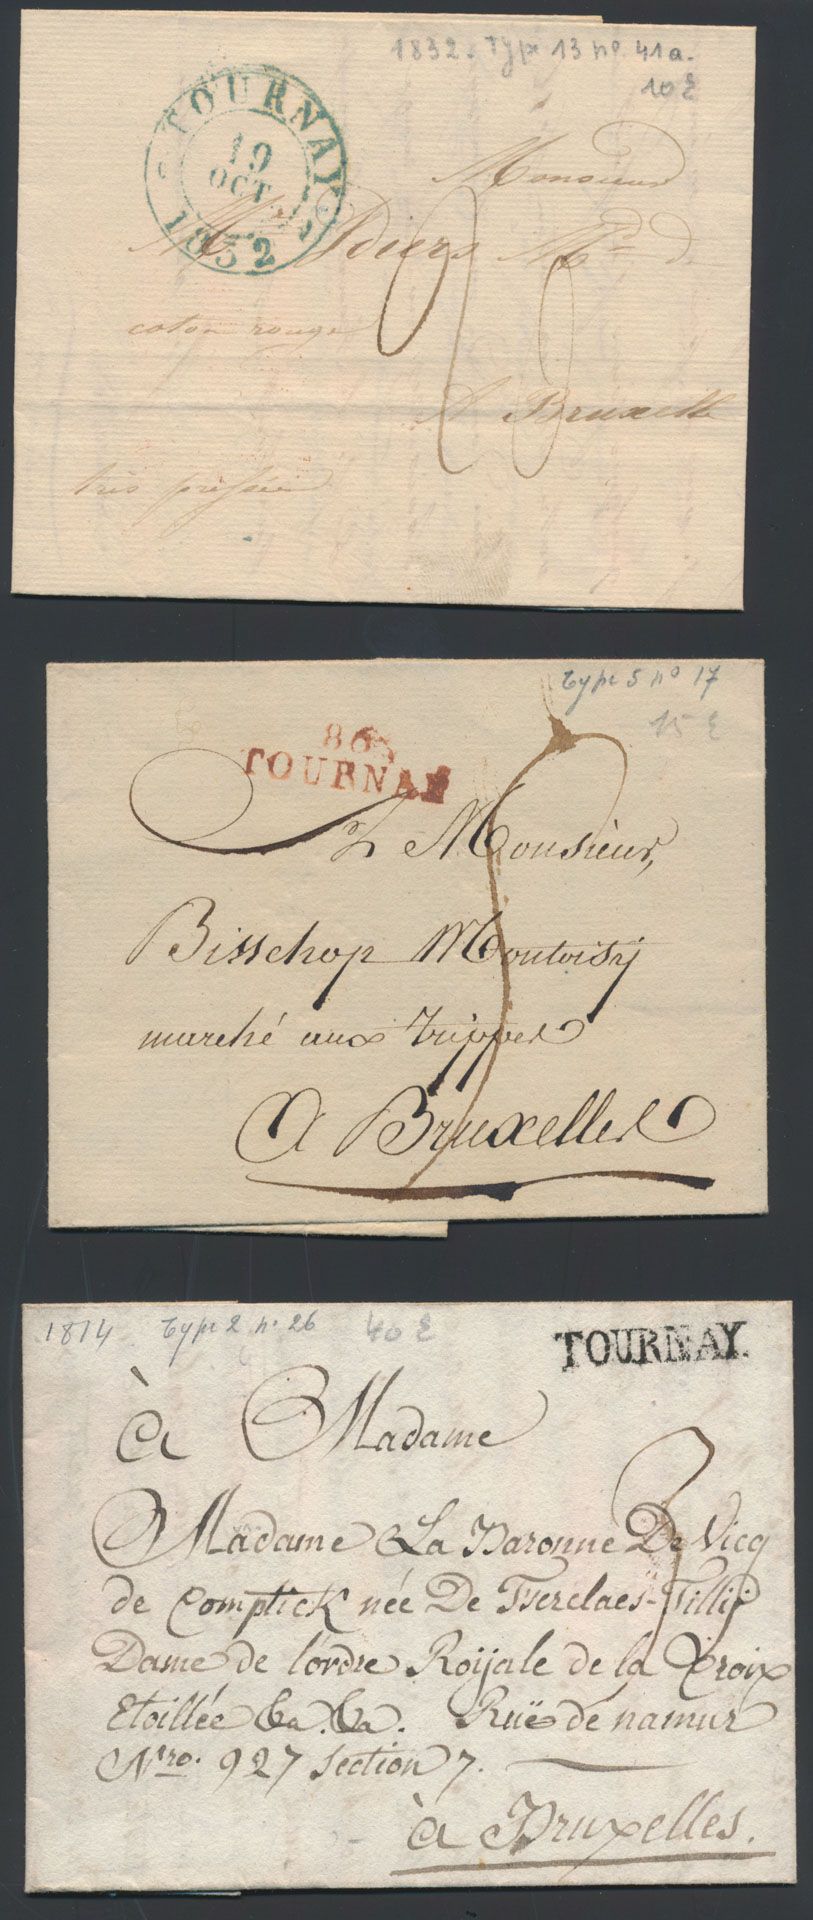 1832. Type 13 no. 41a.
10 £
TOURNAY
19
OCT
1832
Monsieur
Md d
coton rouge
A Bruxelle
très pressée
Type 5 no 17
15 £
86
TOURNAY
A Monsieur,
Bisschop Montoisij
marché aux Trippes
A Bruxelles
1814 Type 2 no. 26 40 £
TOURNAY.
à Madame
3
Madame La Baronne De Vicq
de Comptick née De Tserclaes-Tillij
Dame de l'ordre Roijale de la Croix
Etoillée &a. &a. Rüe de namur
Nro. 927 Section 7.
à Bruxelles.